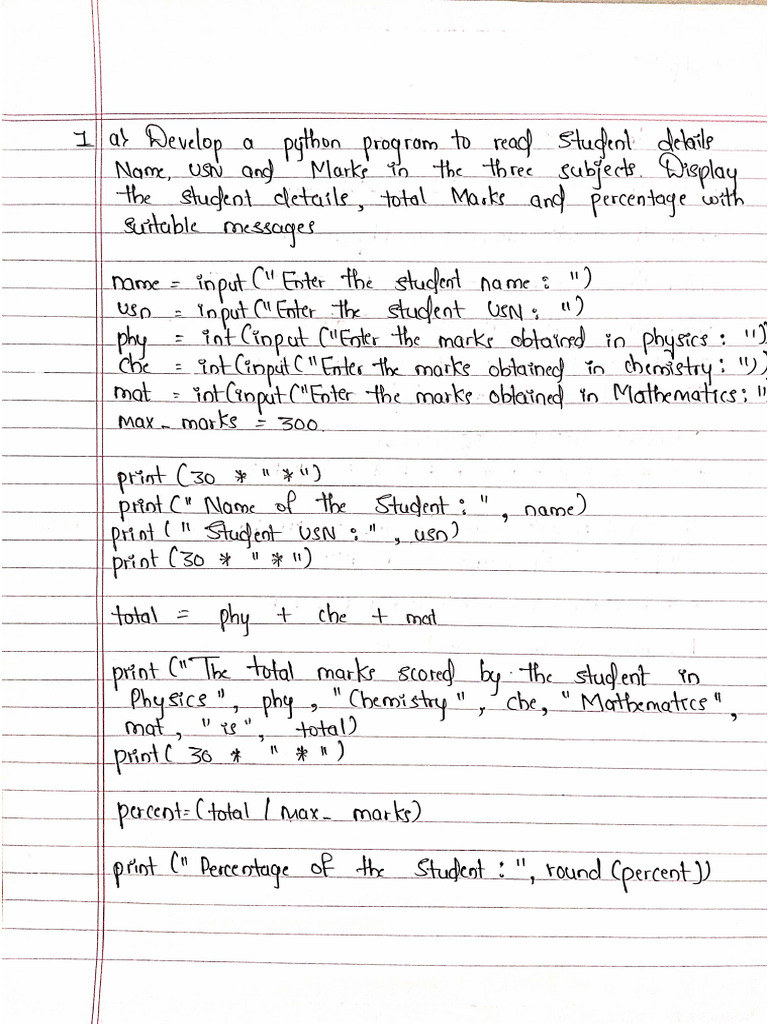 1 a) Develop a python program to read student details
Name, USN and Marks in the three subjects. Display
the student details, total Marks and percentage with
suitable messages
name = input ("Enter the student name : ")
usn = input ("Enter the student USN : ")
phy = int (input ("Enter the marks obtained in physics : "))
che = int (input ("Enter the marks obtained in chemistry : "))
mat = int (input ("Enter the marks obtained in Mathematics : "
max_marks = 300.
print (30 * " *")
print (" Name of the Student : ", name)
print (" Student USN : ", usn)
print (30 * " * ")
total = phy + che + mat
print ("The total marks scored by the student in
Physics", phy , "Chemistry", che, "Mathematics",
mat, "is", total)
print ( 30 * " * ")
percent = (total / max_marks)
print (" Percentage of the Student : ", round (percent))